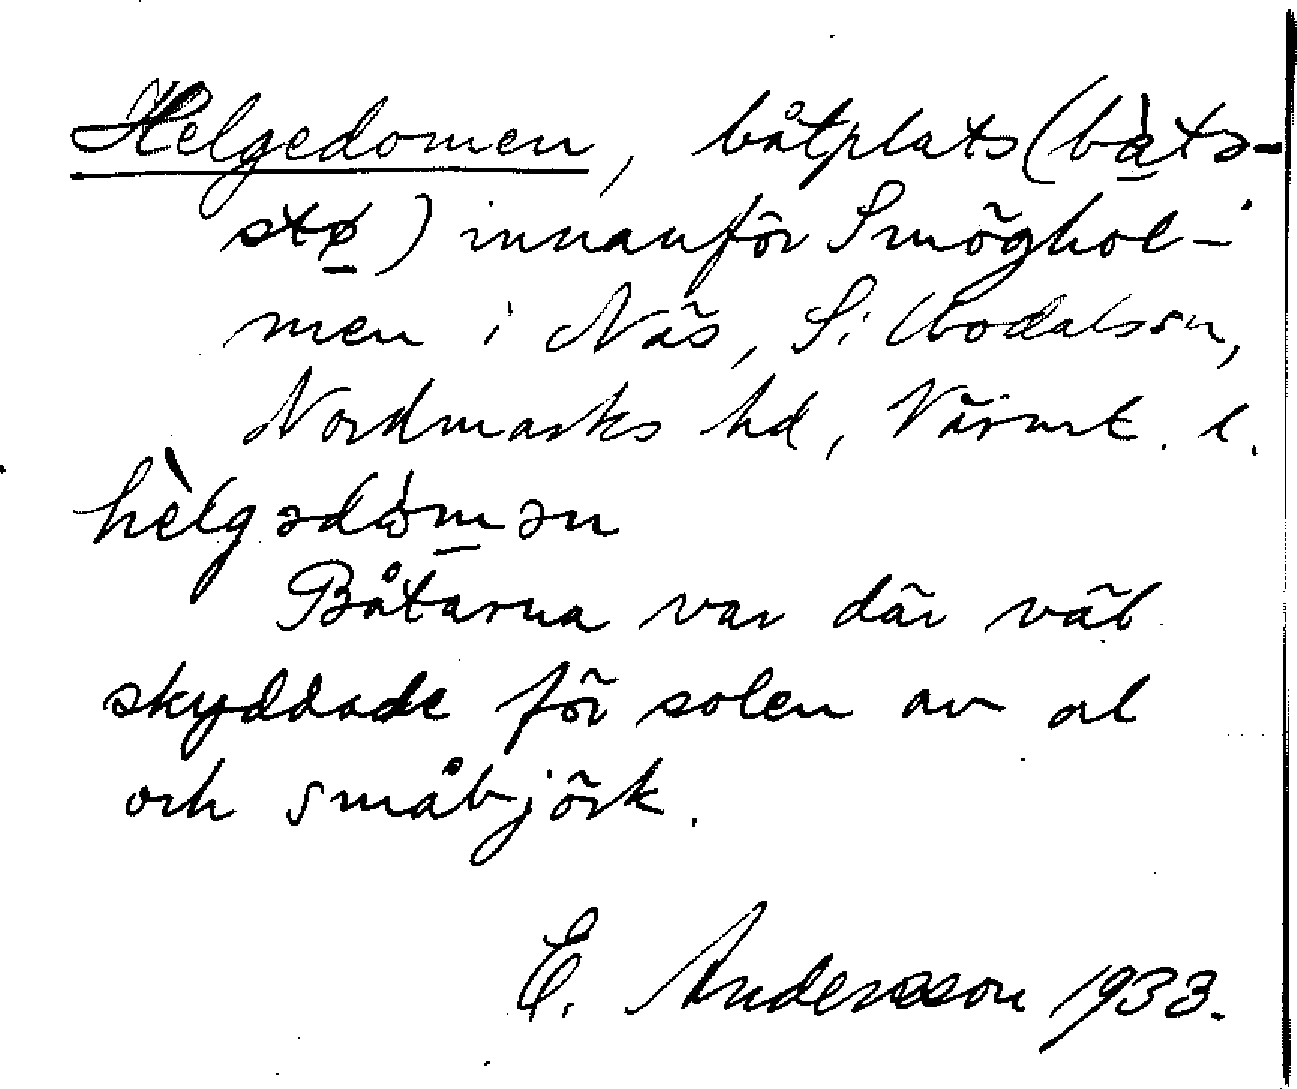 Helgedomen, båtplats (bàts-
stø) innanför Smöghol-
men i Näs, S:
Nordmarks hd, Värml. l.
hèlgədòmən
Båtarna var där väl
skyddade för solen av al
och småbjörk.
E. Andersson 1933.